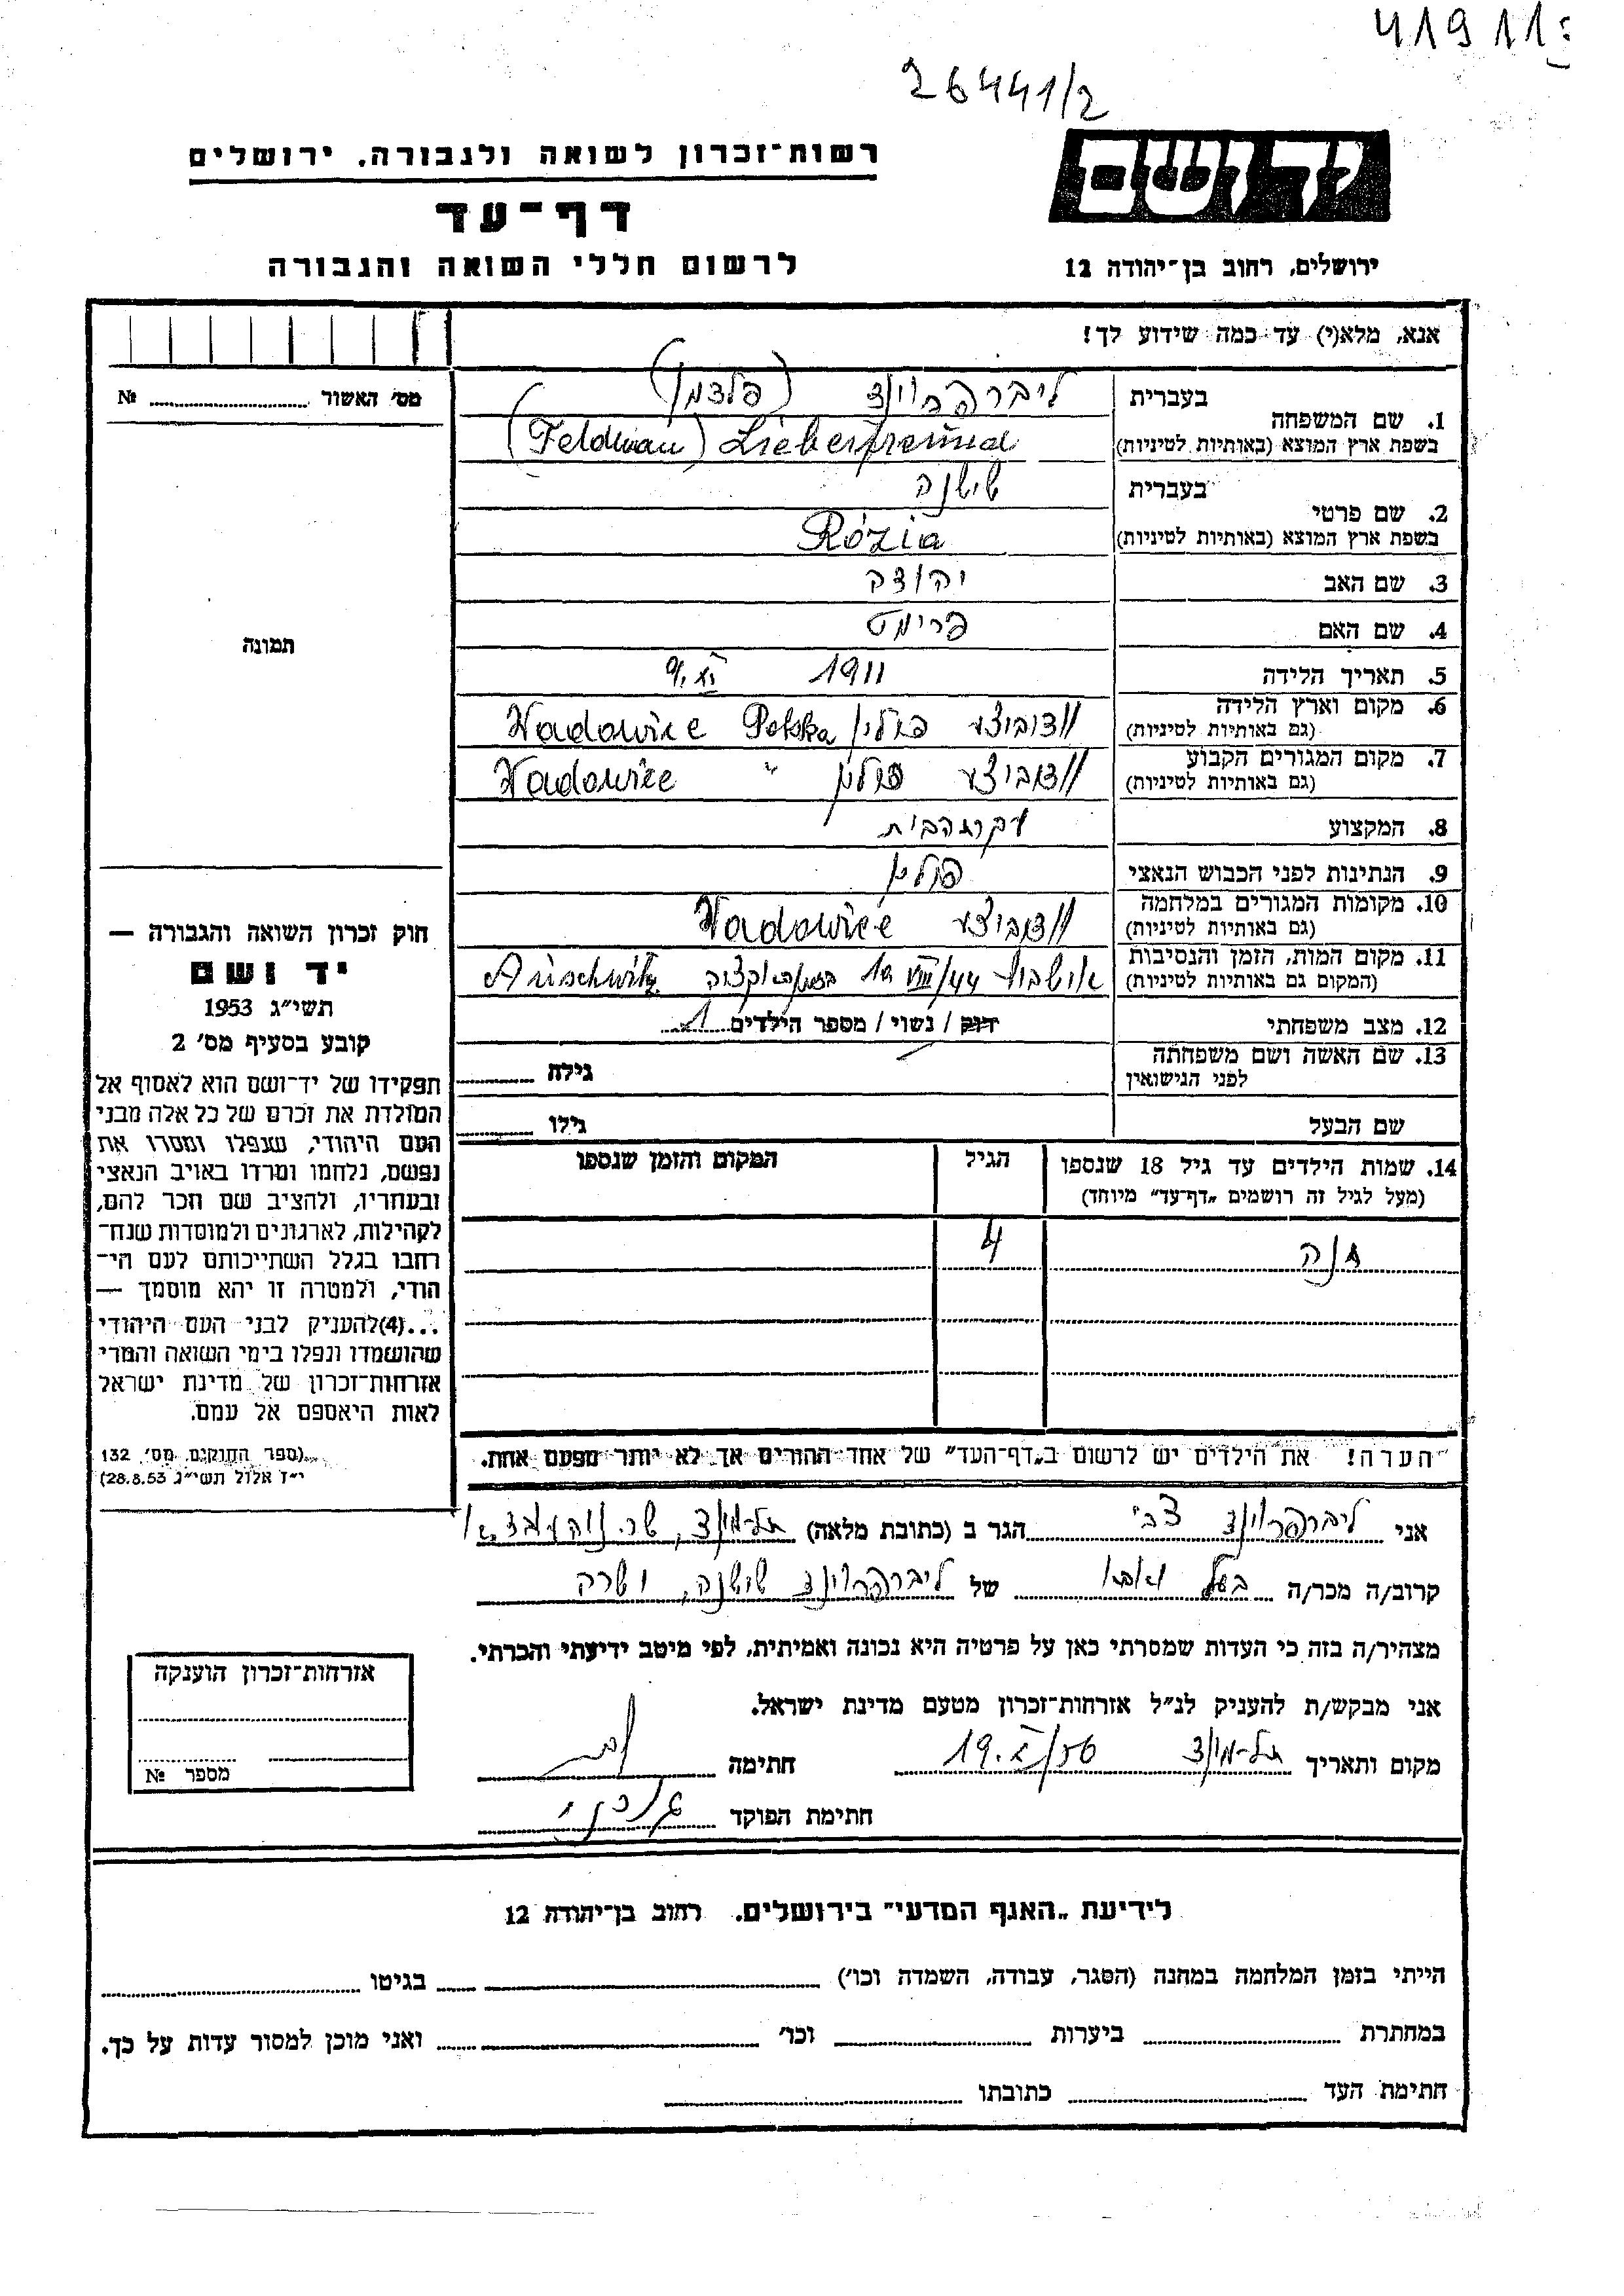 41911
26441/2
יד ושם
רשות־זכרון לשואה ולגבורה. ירושלים
דף־עד
לרשום חללי השואה והגבורה
ירושלים, רחוב בן־יהודה 12
אנא, מלא(י) עד כמה שידוע לך!
מס׳ האשור № 
1. שם המשפחה בעברית ליברפרוינד (פלדמן)
בשפת ארץ המוצא (באותיות לטיניות) (Feldman) Lieberfreund
2. שם פרטי בעברית שושנה
בשפת ארץ המוצא (באותיות לטיניות) Rózia
3. שם האב יהודה
4. שם האם פרימט
5. תאריך הלידה 1911
6. מקום וארץ הלידה
(גם באותיות לטיניות) וודוביצע פולין Wadowice Polska
7. מקום המגורים הקבוע
(גם באותיות לטיניות) וודוביצע פולין " Wadowice
8. המקצוע עקרת הבית
9. הנתינות לפני הכבוש הנאצי פולין
10. מקומות המגורים במלחמה
(גם באותיות לטיניות) וודוביצע Wadowice
11. מקום המות, הזמן והנסיבות
(המקום גם באותיות לטיניות) VIII/44 Auschwitz
12. מצב משפחתי רוק / נשוי / מספר הילדים 1
13. שם האשה ושם משפחתה
לפני הנישואין גילה
שם הבעל גילו
14. שמות הילדים עד גיל 18 שנספו הגיל המקום והזמן שנספו
(מעל לגיל זה רושמים „דף־עד״ מיוחד)
חנה 4
הערה! את הילדים יש לרשום ב„דף־העד״ של אחד ההורים אך לא יותר מפעם אחת.
תמונה
חוק זכרון השואה והגבורה —
יד ושם
תשי״ג 1953
קובע בסעיף מס׳ 2
תפקידו של יד־ושם הוא לאסוף אל
המולדת את זכרם של כל אלה מבני
העם היהודי, שנפלו ומסרו את
נפשם, נלחמו ומרדו באויב הנאצי
ובעוזריו, ולהציב שם וזכר להם,
לקהילות, לארגונים ולמוסדות שנח־
רבו בגלל השתייכותם לעם הי־
הודי, ולמטרה זו יהא מוסמך —
...(4)להעניק לבני העם היהודי
שהושמדו ונפלו בימי השואה והמרי
אזרחות־זכרון של מדינת ישראל
לאות היאספם אל עמם.
(ספר החוקים מס׳ 132
י״ז אלול תשי״ג 28.8.53)
אני ליברפרוינד צבי הגר ב (כתובת מלאה) תל-מונד,
קרוב/ה מכר/ה בעל ואבא של ליברפרוינד שושנה,
מצהיר/ה בזה כי העדות שמסרתי כאן על פרטיה היא נכונה ואמיתית, לפי מיטב ידיעתי והכרתי.
אני מבקש/ת להעניק לנ״ל אזרחות־זכרון מטעם מדינת ישראל.
מקום ותאריך תל-מונד 19. X/56 חתימה
חתימת הפוקד
אזרחות־זכרון הוענקה
מספר №
לידיעת „האגף המדעי״ בירושלים. רחוב בן־יהודה 12
הייתי בזמן המלחמה במחנה (הסגר, עבודה, השמדה וכו׳) בגיטו
במחתרת ביערות וכו׳ ואני מוכן למסור עדות על כך.
חתימת העד כתובתו